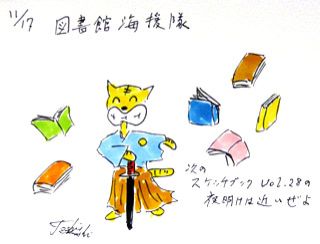 11/17 図書館海援隊
次の
スケッチブック Vol.28の
夜明けは近いぜよ